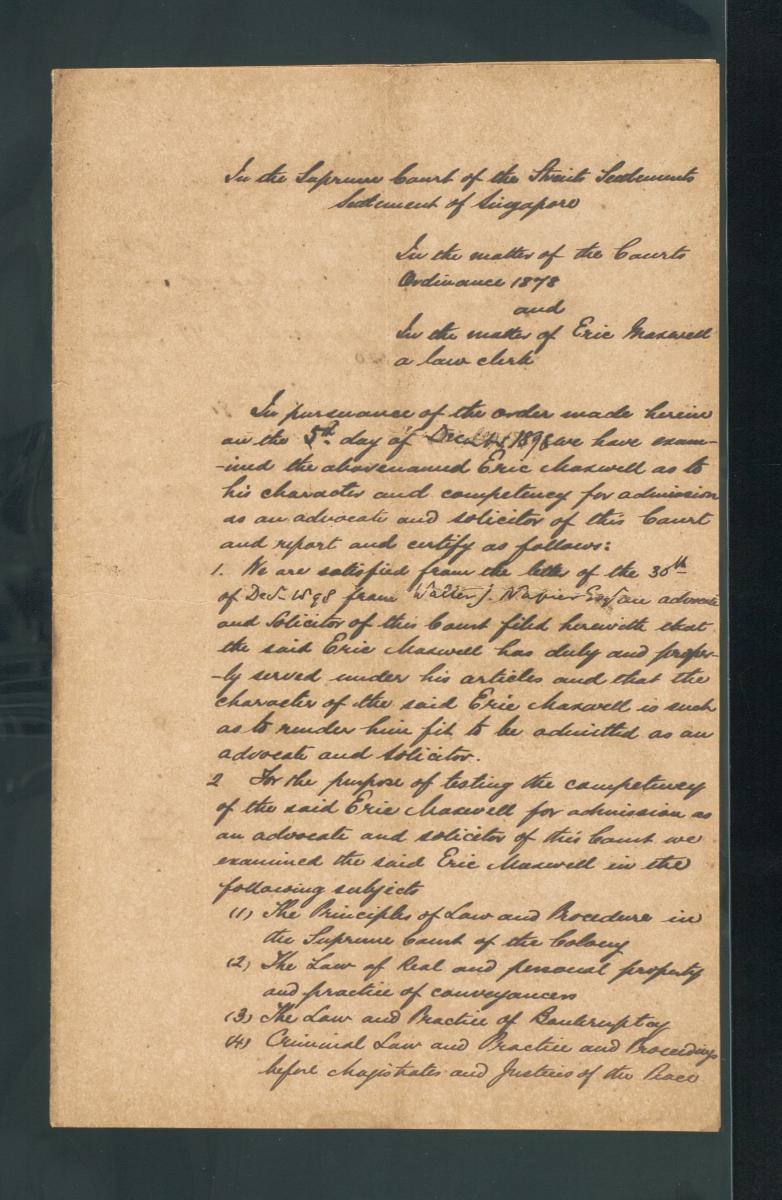 In the Supreme Court of the Straits Settlements
Settlement of Singapore
In the matter of the Courts
Ordinance 1878
and
In the matter of Eric Maxwell
a law clerk
In pursuance of the order made herein
on the 5th day of Decr 1898 we have exam-
-ined the abovenamed Eric Maxwell as to
his character and competency for admission
as an advocate and solicitor of this Court
and report and certify as follows:
1. We are satisfied from the letter of the 30th
of Decr 1898 from Walter J. Napier Esq an advocate
and Solicitor of this Court filed herewith that
the said Eric Maxwell has duly and proper-
-ly served under his articles and that the
character of the said Eric Maxwell is such
as to render him fit to be admitted as an
advocate and solicitor.
2 For the purpose of testing the competency
of the said Eric Maxwell for admission as
an advocate and solicitor of this Court we
examined the said Eric Maxwell in the
following subjects
(1) The Principles of Law and Procedure in
the Supreme Court of the Colony
(2) The Law of Real and personal property
and practice of conveyances
(3) The Law and Practice of Bankruptcy
(4) Criminal Law and Practice and Proceedings
before Magistrates and Justices of the Peace